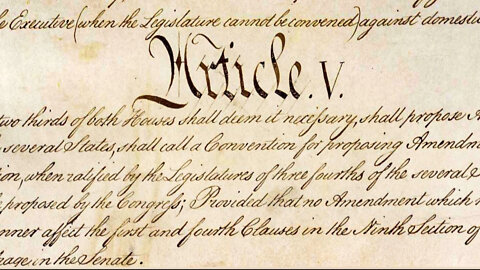 e Executive (when the Legislature cannot be convened) against domestic
Article. V.
two thirds of both Houses shall deem it necessary, shall propose A
several States, shall call a Convention for proposing Amendm
ion, when ratified by the Legislatures of three fourths of the several
e proposed by the Congress; Provided that no Amendment which
nner affect the first and fourth Clauses in the Ninth Section of
rage in the Senate.